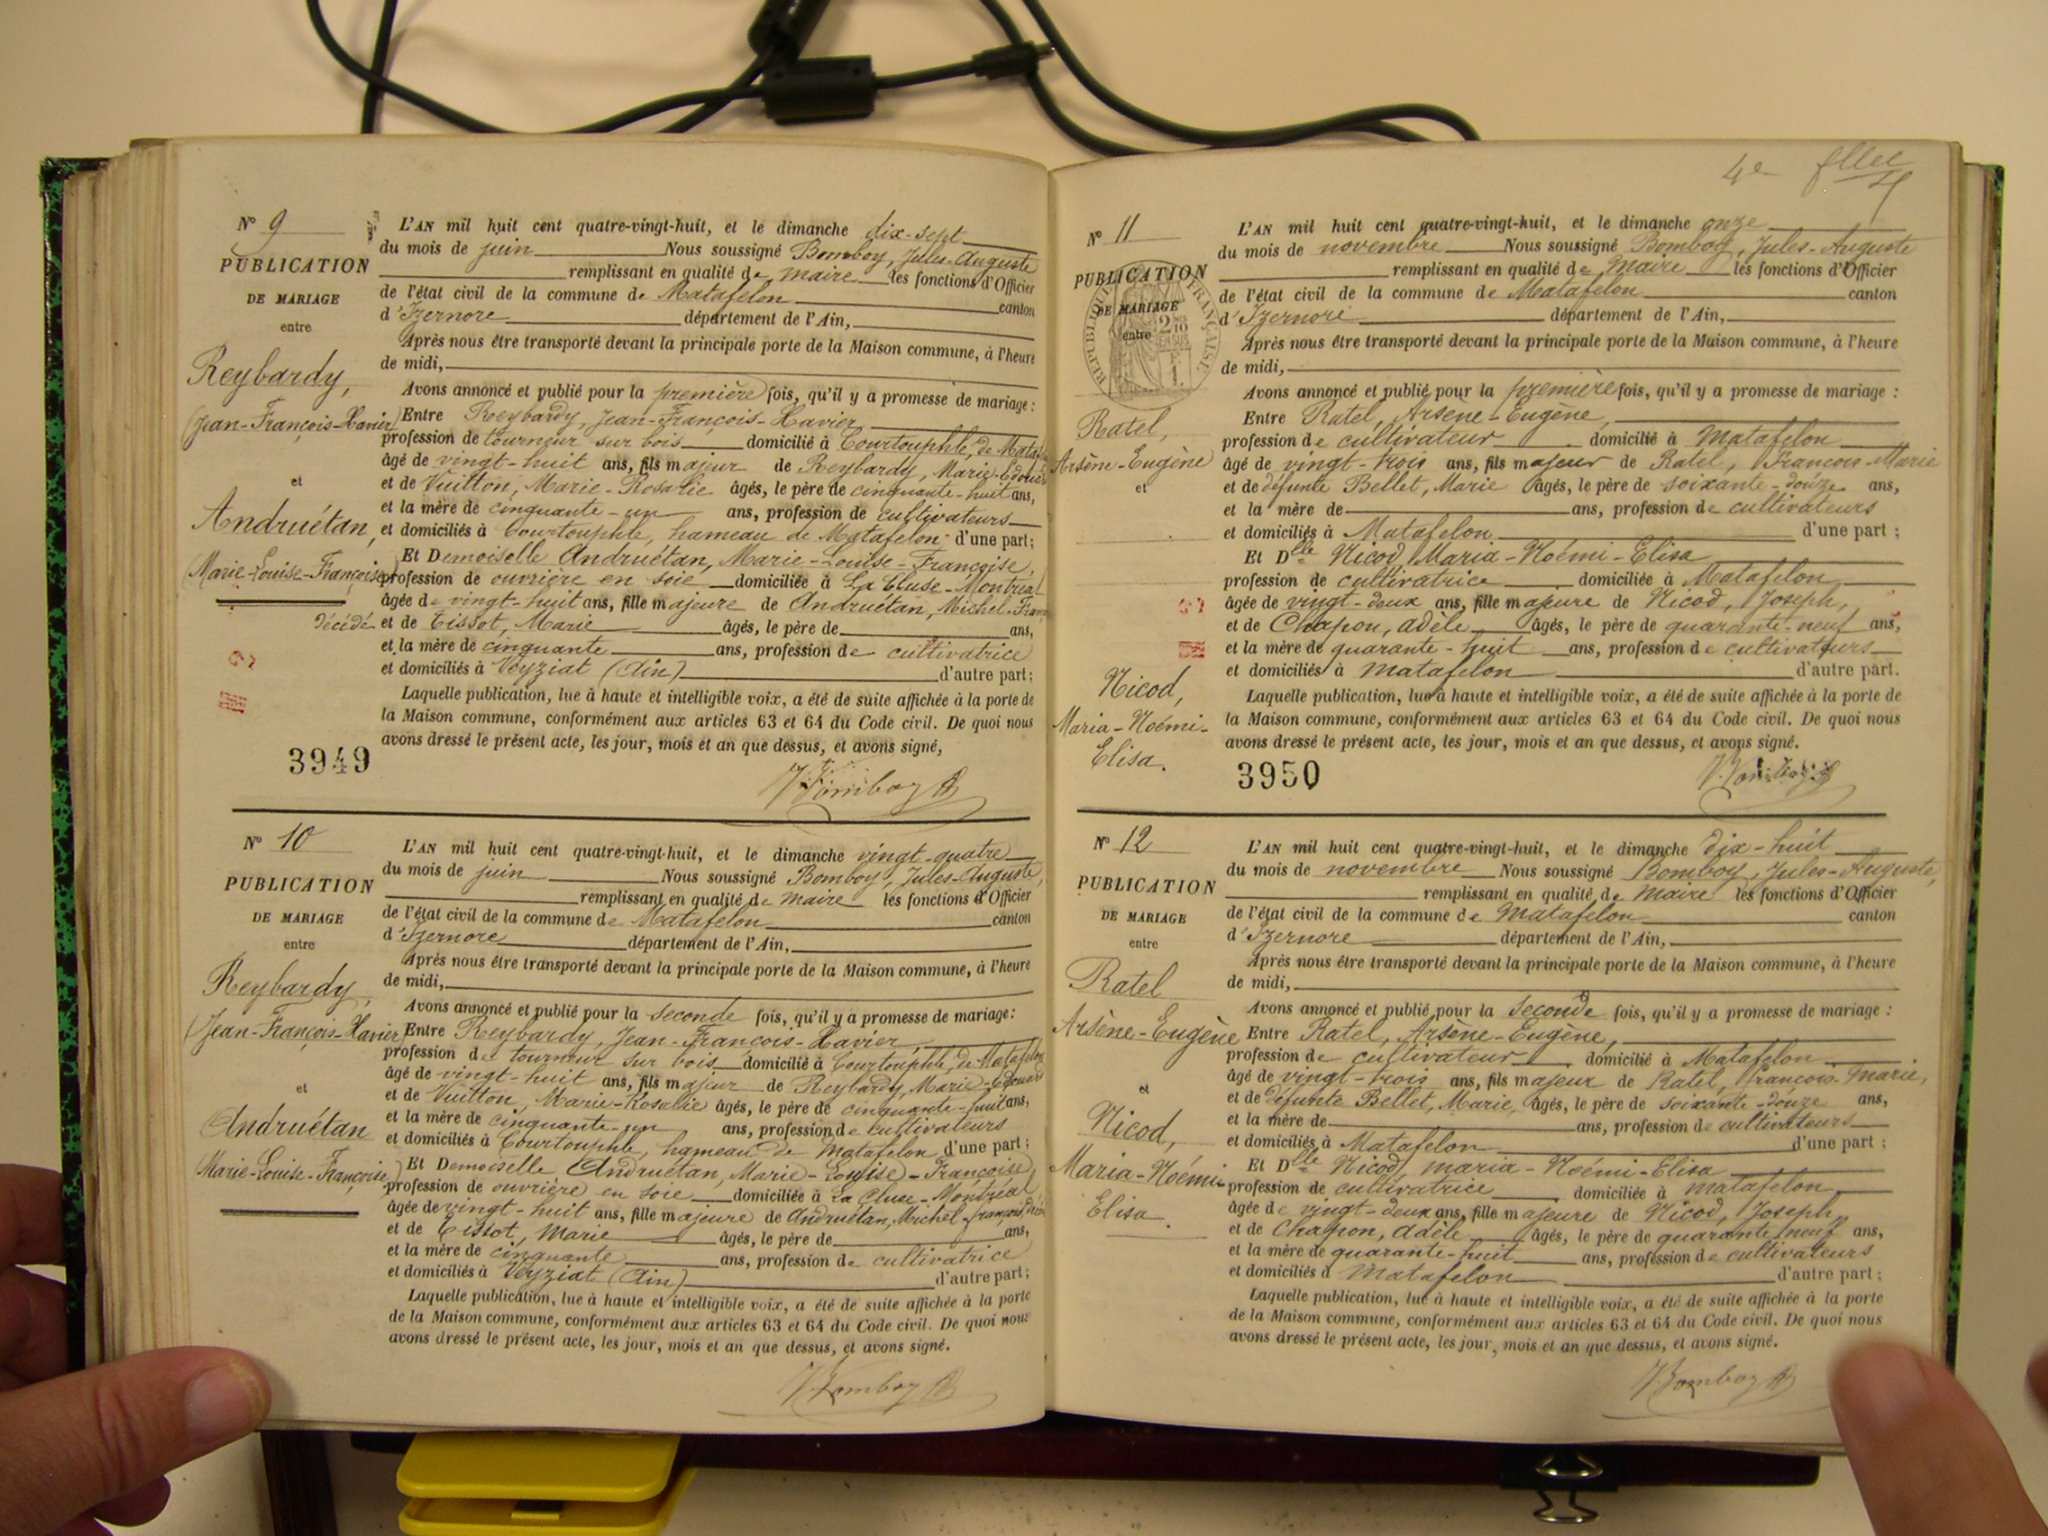 Nº 9
PUBLICATION
DE MARIAGE
entre
Reybardy,
(Jean-François-Xavier)
et
Andruétan,
(Marie-Louise-Françoise)
décédé
3949
L'AN mil huit cent quatre-vingt-huit, et le dimanche dix-sept
du mois de juin Nous soussigné Bomboy, Jules-Auguste
remplissant en qualité de maire les fonctions d'Officier
de l'état civil de la commune de Matafelon canton
d'Izernore département de l'Ain,
Après nous être transporté devant la principale porte de la Maison commune, à l'heure
de midi,
Avons annoncé et publié pour la première fois, qu'il y a promesse de mariage :
Entre Reybardy, Jean-François-Xavier,
profession de tourneur sur bois domicilié à Courtouphle, de Mata
âgé de vingt-huit ans, fils majeur de Reybardy, Marie-Edouard
et de Vuitton, Marie-Rosalie âgés, le père de cinquante-huit ans,
et la mère de cinquante-un ans, profession de cultivateurs
et domiciliés à Courtouphle, hameau de Matafelon d'une part;
Et Demoiselle Andruétan, Marie-Louise-Françoise,
profession de ouvrière en soie domiciliée à La Cluse-Montréal
âgée de vingt-huit ans, fille majeure de Andruétan, Michel-Franç
et de Tissot, Marie âgés, le père de ans,
et la mère de cinquante ans, profession de cultivatrice
et domiciliés à Veyziat (Ain) d'autre part;
Laquelle publication, lue à haute et intelligible voix, a été de suite affichée à la porte de
la Maison commune, conformément aux articles 63 et 64 du Code civil. De quoi nous
avons dressé le présent acte, les jour, mois et an que dessus, et avons signé,
J. Bomboy
Nº 10
PUBLICATION
DE MARIAGE
entre
Reybardy,
(Jean-François-Xavier)
et
Andruétan
(Marie-Louise-Françoise)
L'AN mil huit cent quatre-vingt-huit, et le dimanche vingt-quatre
du mois de juin Nous soussigné Bomboy, Jules-Auguste,
remplissant en qualité de maire les fonctions d'Officier
de l'état civil de la commune de Matafelon canton
d'Izernore département de l'Ain,
Après nous être transporté devant la principale porte de la Maison commune, à l'heure
de midi,
Avons annoncé et publié pour la seconde fois, qu'il y a promesse de mariage :
Entre Reybardy, Jean-François-Xavier,
profession de tourneur sur bois domicilié à Courtouphle, de Matafelon
âgé de vingt-huit ans, fils majeur de Reybardy, Marie-Edouard
et de Vuitton, Marie-Rosalie âgés, le père de cinquante-huit ans,
et la mère de cinquante-un ans, profession de cultivateurs
et domiciliés à Courtouphle, hameau de Matafelon d'une part ;
Et Demoiselle Andruétan, Marie-Louise-Françoise,
profession de ouvrière en soie domiciliée à La Cluse-Montréal
âgée de vingt-huit ans, fille majeure de Andruétan, Michel-françois, décé
et de Tissot, Marie âgés, le père de ans,
et la mère de cinquante ans, profession de cultivatrice
et domiciliés à Veyziat (Ain) d'autre part ;
Laquelle publication, lue à haute et intelligible voix, a été de suite affichée à la porte
de la Maison commune, conformément aux articles 63 et 64 du Code civil. De quoi nous
avons dressé le présent acte, les jour, mois et an que dessus, et avons signé.
J. Bomboy
4e
Nº 11
PUBLICATION
DE MARIAGE
entre
RÉPUBLIQUE FRANÇAISE
Ratel,
Arsène-Eugène
et
Nicod,
Maria-Noémi-
Elisa.
3950
L'AN mil huit cent quatre-vingt-huit, et le dimanche onze
du mois de novembre Nous soussigné Bomboy, Jules-Auguste
remplissant en qualité de maire les fonctions d'Officier
de l'état civil de la commune de Matafelon canton
d'Izernore département de l'Ain,
Après nous être transporté devant la principale porte de la Maison commune, à l'heure
de midi,
Avons annoncé et publié pour la première fois, qu'il y a promesse de mariage :
Entre Ratel, Arsène-Eugène,
profession de cultivateur domicilié à Matafelon
âgé de vingt-trois ans, fils majeur de Ratel, François-Marie
et de défunte Bellet, Marie âgés, le père de soixante-douze ans,
et la mère de ans, profession de cultivateurs
et domiciliés à Matafelon d'une part ;
Et Dlle Nicod, Maria-Noémi-Elisa
profession de cultivatrice domiciliée à Matafelon
âgée de vingt-deux ans, fille majeure de Nicod, Joseph,
et de Chapon, Adèle âgés, le père de quarante-neuf ans,
et la mère de quarante-huit ans, profession de cultivateurs
et domiciliés à Matafelon d'autre part.
Laquelle publication, lue à haute et intelligible voix, a été de suite affichée à la porte de
la Maison commune, conformément aux articles 63 et 64 du Code civil. De quoi nous
avons dressé le présent acte, les jour, mois et an que dessus, et avons signé.
J. Bomboy
Nº 12
PUBLICATION
DE MARIAGE
entre
Ratel
Arsène-Eugène
et
Nicod,
Maria-Noémi
Elisa.
L'AN mil huit cent quatre-vingt-huit, et le dimanche dix-huit
du mois de novembre Nous soussigné Bomboy, Jules-Auguste,
remplissant en qualité de maire les fonctions d'Officier
de l'état civil de la commune de Matafelon canton
d'Izernore département de l'Ain,
Après nous être transporté devant la principale porte de la Maison commune, à l'heure
de midi,
Avons annoncé et publié pour la seconde fois, qu'il y a promesse de mariage :
Entre Ratel, Arsène-Eugène,
profession de cultivateur domicilié à Matafelon
âgé de vingt-trois ans, fils majeur de Ratel, François-Marie,
et de défunte Bellet, Marie, âgés, le père de soixante-douze ans,
et la mère de ans, profession de cultivateurs
et domiciliés à Matafelon d'une part ;
Et Dlle Nicod, Maria-Noémi-Elisa
profession de cultivatrice domiciliée à Matafelon
âgée de vingt-deux ans, fille majeure de Nicod, Joseph,
et de Chapon, Adèle âgés, le père de quarante neuf ans,
et la mère de quarante-huit ans, profession de cultivateurs
et domiciliés à Matafelon d'autre part ;
Laquelle publication, lue à haute et intelligible voix, a été de suite affichée à la porte
de la Maison commune, conformément aux articles 63 et 64 du Code civil. De quoi nous
avons dressé le présent acte, les jour, mois et an que dessus, et avons signé.
J. Bomboy